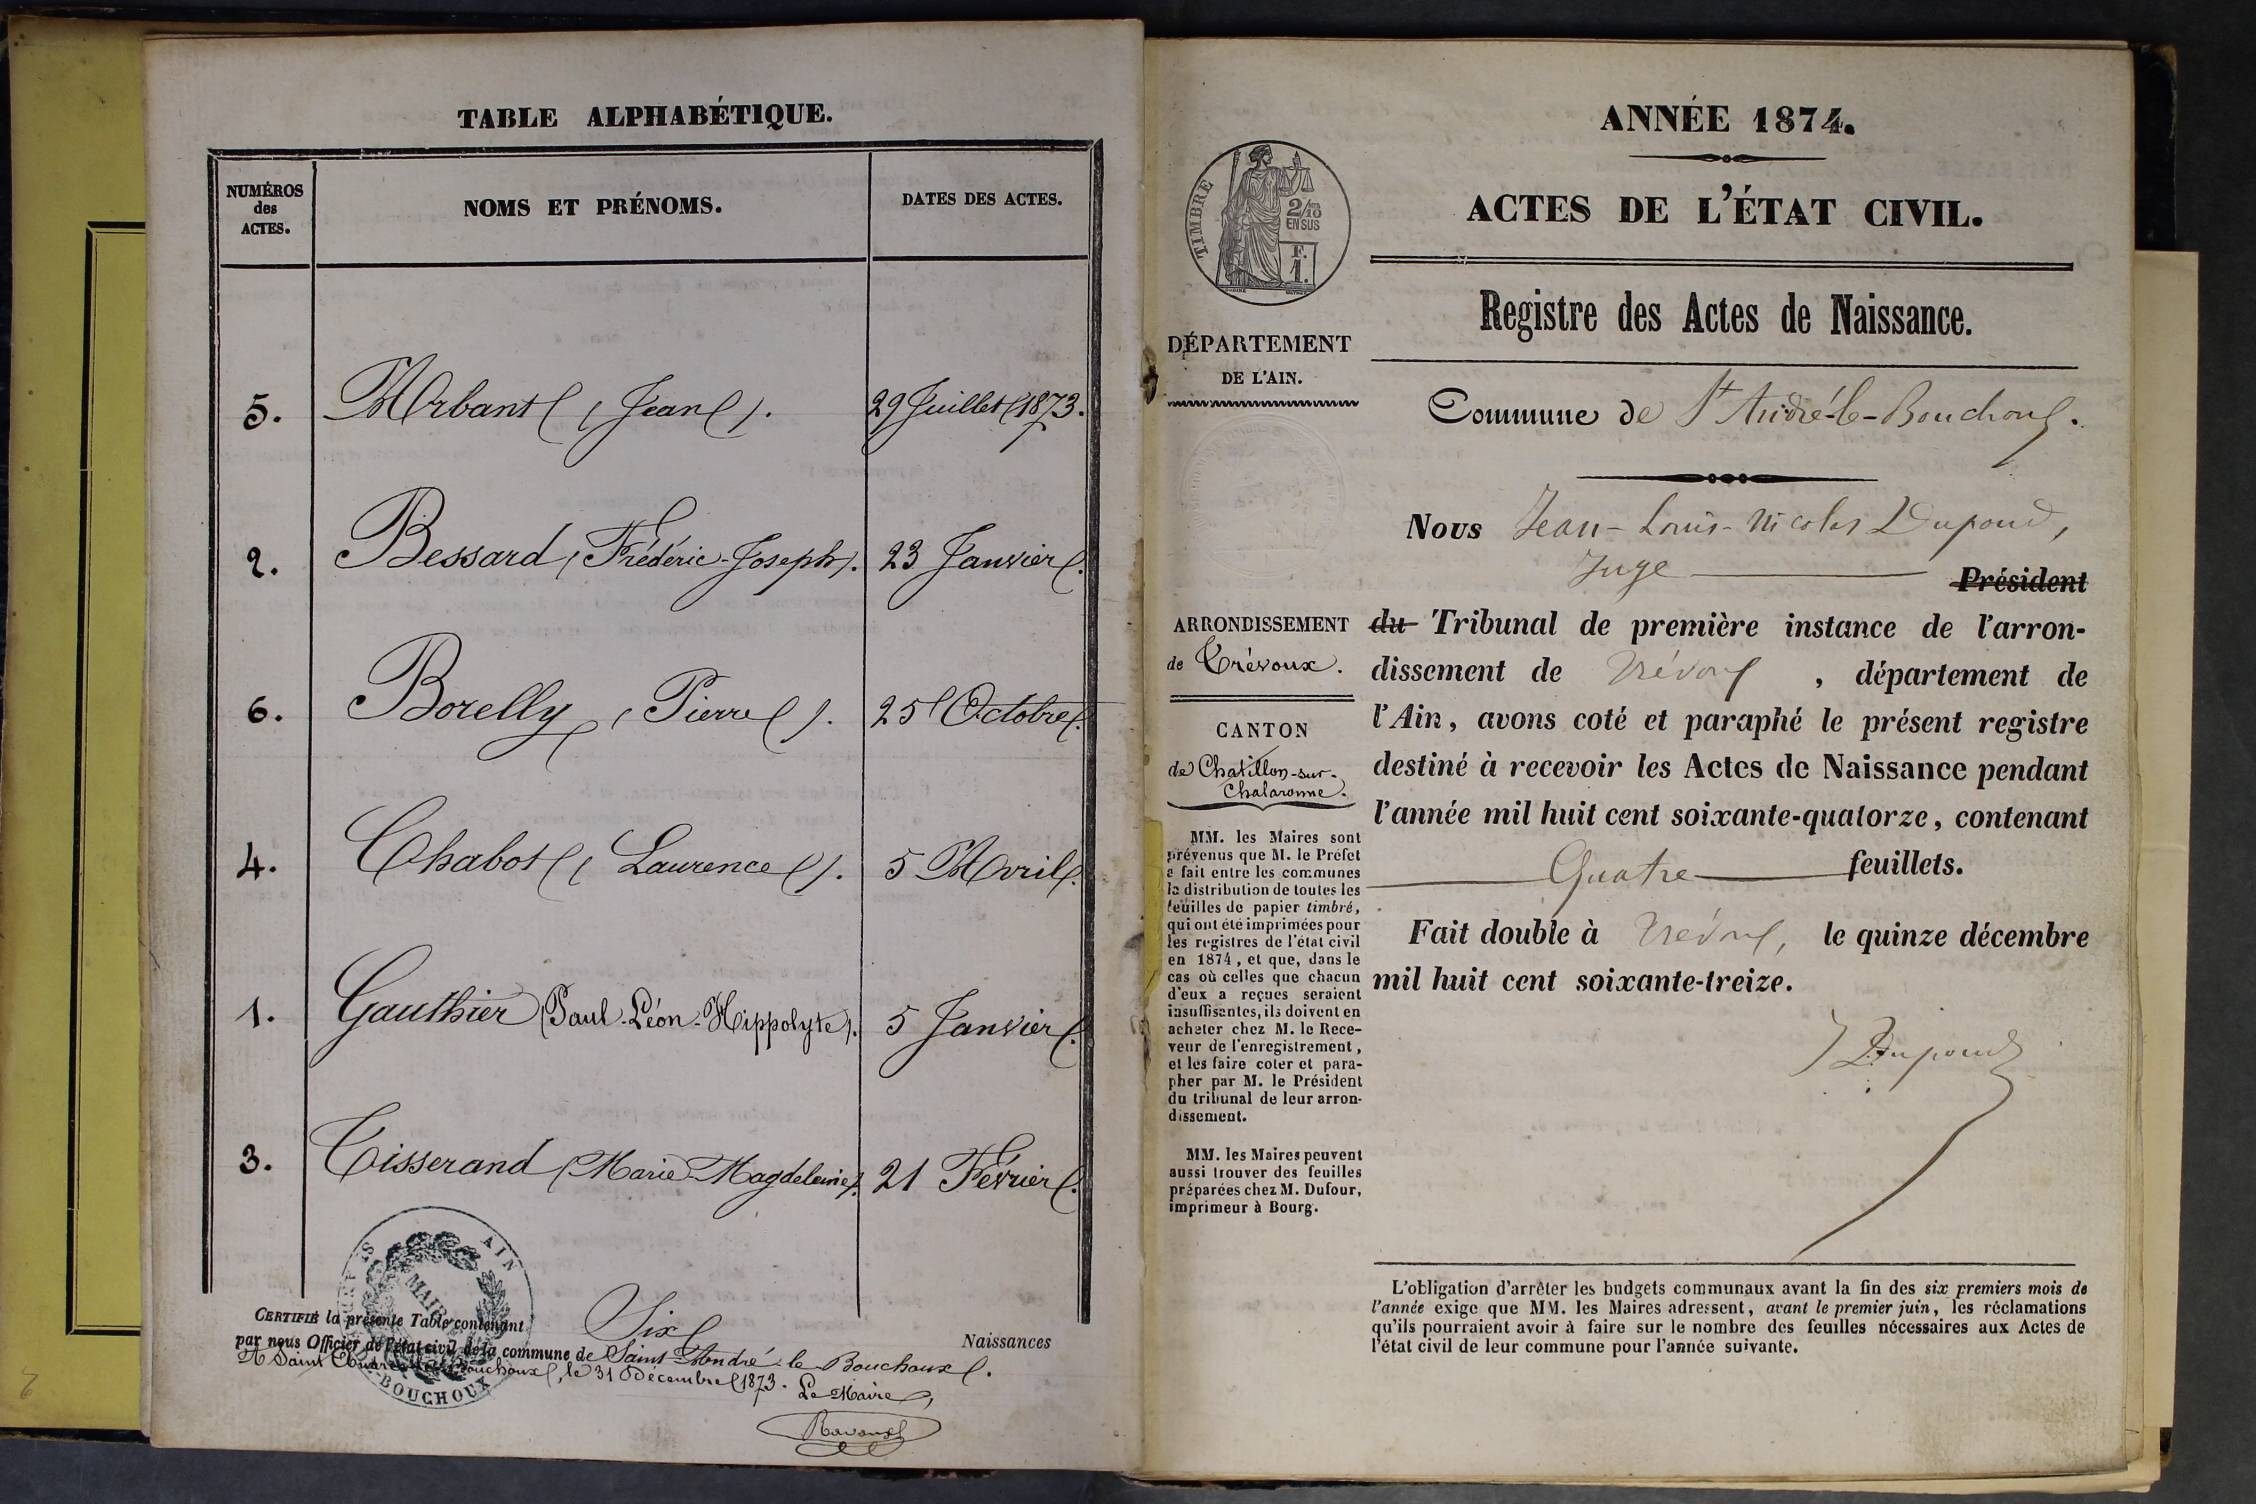 TABLE ALPHABÉTIQUE.
NUMÉROS
des
ACTES.
NOMS ET PRÉNOMS.
DATES DES ACTES.
5. Arbant (Jean). 29 Juillet 1873.
2. Bessard (Frédéric-Joseph). 23 Janvier.
6. Borelly (Pierre). 25 Octobre.
4. Chabot (Laurence). 5 Avril.
1. Gauthier (Paul-Léon-Hippolyte). 5 Janvier.
3. Tisserand (Marie-Magdeleine). 21 Février.
CERTIFIÉ la présente Table contenant Six Naissances
par nous Officier de l'état civil de la commune de Saint André-le-Bouchoux.
A Saint André-le-Bouchoux, le 31 Décembre 1873. Le Maire,
MAIRIE
AIN
BOUCHOUX
ANNÉE 1874.
ACTES DE L'ÉTAT CIVIL.
Registre des Actes de Naissance.
Commune de St André-le-Bouchoux.
TIMBRE
2/10
EN SUS
F.
1.
DÉPARTEMENT
DE L'AIN.
ARRONDISSEMENT
de Trévoux.
CANTON
de Chatillon-sur-
Chalaronne.
MM. les Maires sont
prévenus que M. le Préfet
a fait entre les communes
la distribution de toutes les
feuilles de papier timbré,
qui ont été imprimées pour
les registres de l'état civil
en 1874, et que, dans le
cas où celles que chacun
d'eux a reçues seraient
insuffisantes, ils doivent en
acheter chez M. le Rece-
veur de l'enregistrement,
et les faire coter et para-
pher par M. le Président
du tribunal de leur arron-
dissement.
MM. les Maires peuvent
aussi trouver des feuilles
préparées chez M. Dufour,
imprimeur à Bourg.
Nous Jean-Louis-Nicolas Dupond,
Juge Président
du Tribunal de première instance de l'arron-
dissement de Trévoux, département de
l'Ain, avons coté et paraphé le présent registre
destiné à recevoir les Actes de Naissance pendant
l'année mil huit cent soixante-quatorze, contenant
Quatre feuillets.
Fait double à Trévoux, le quinze décembre
mil huit cent soixante-treize.
J Dupond
L'obligation d'arrêter les budgets communaux avant la fin des six premiers mois de
l'année exige que MM. les Maires adressent, avant le premier juin, les réclamations
qu'ils pourraient avoir à faire sur le nombre des feuilles nécessaires aux Actes de
l'état civil de leur commune pour l'année suivante.